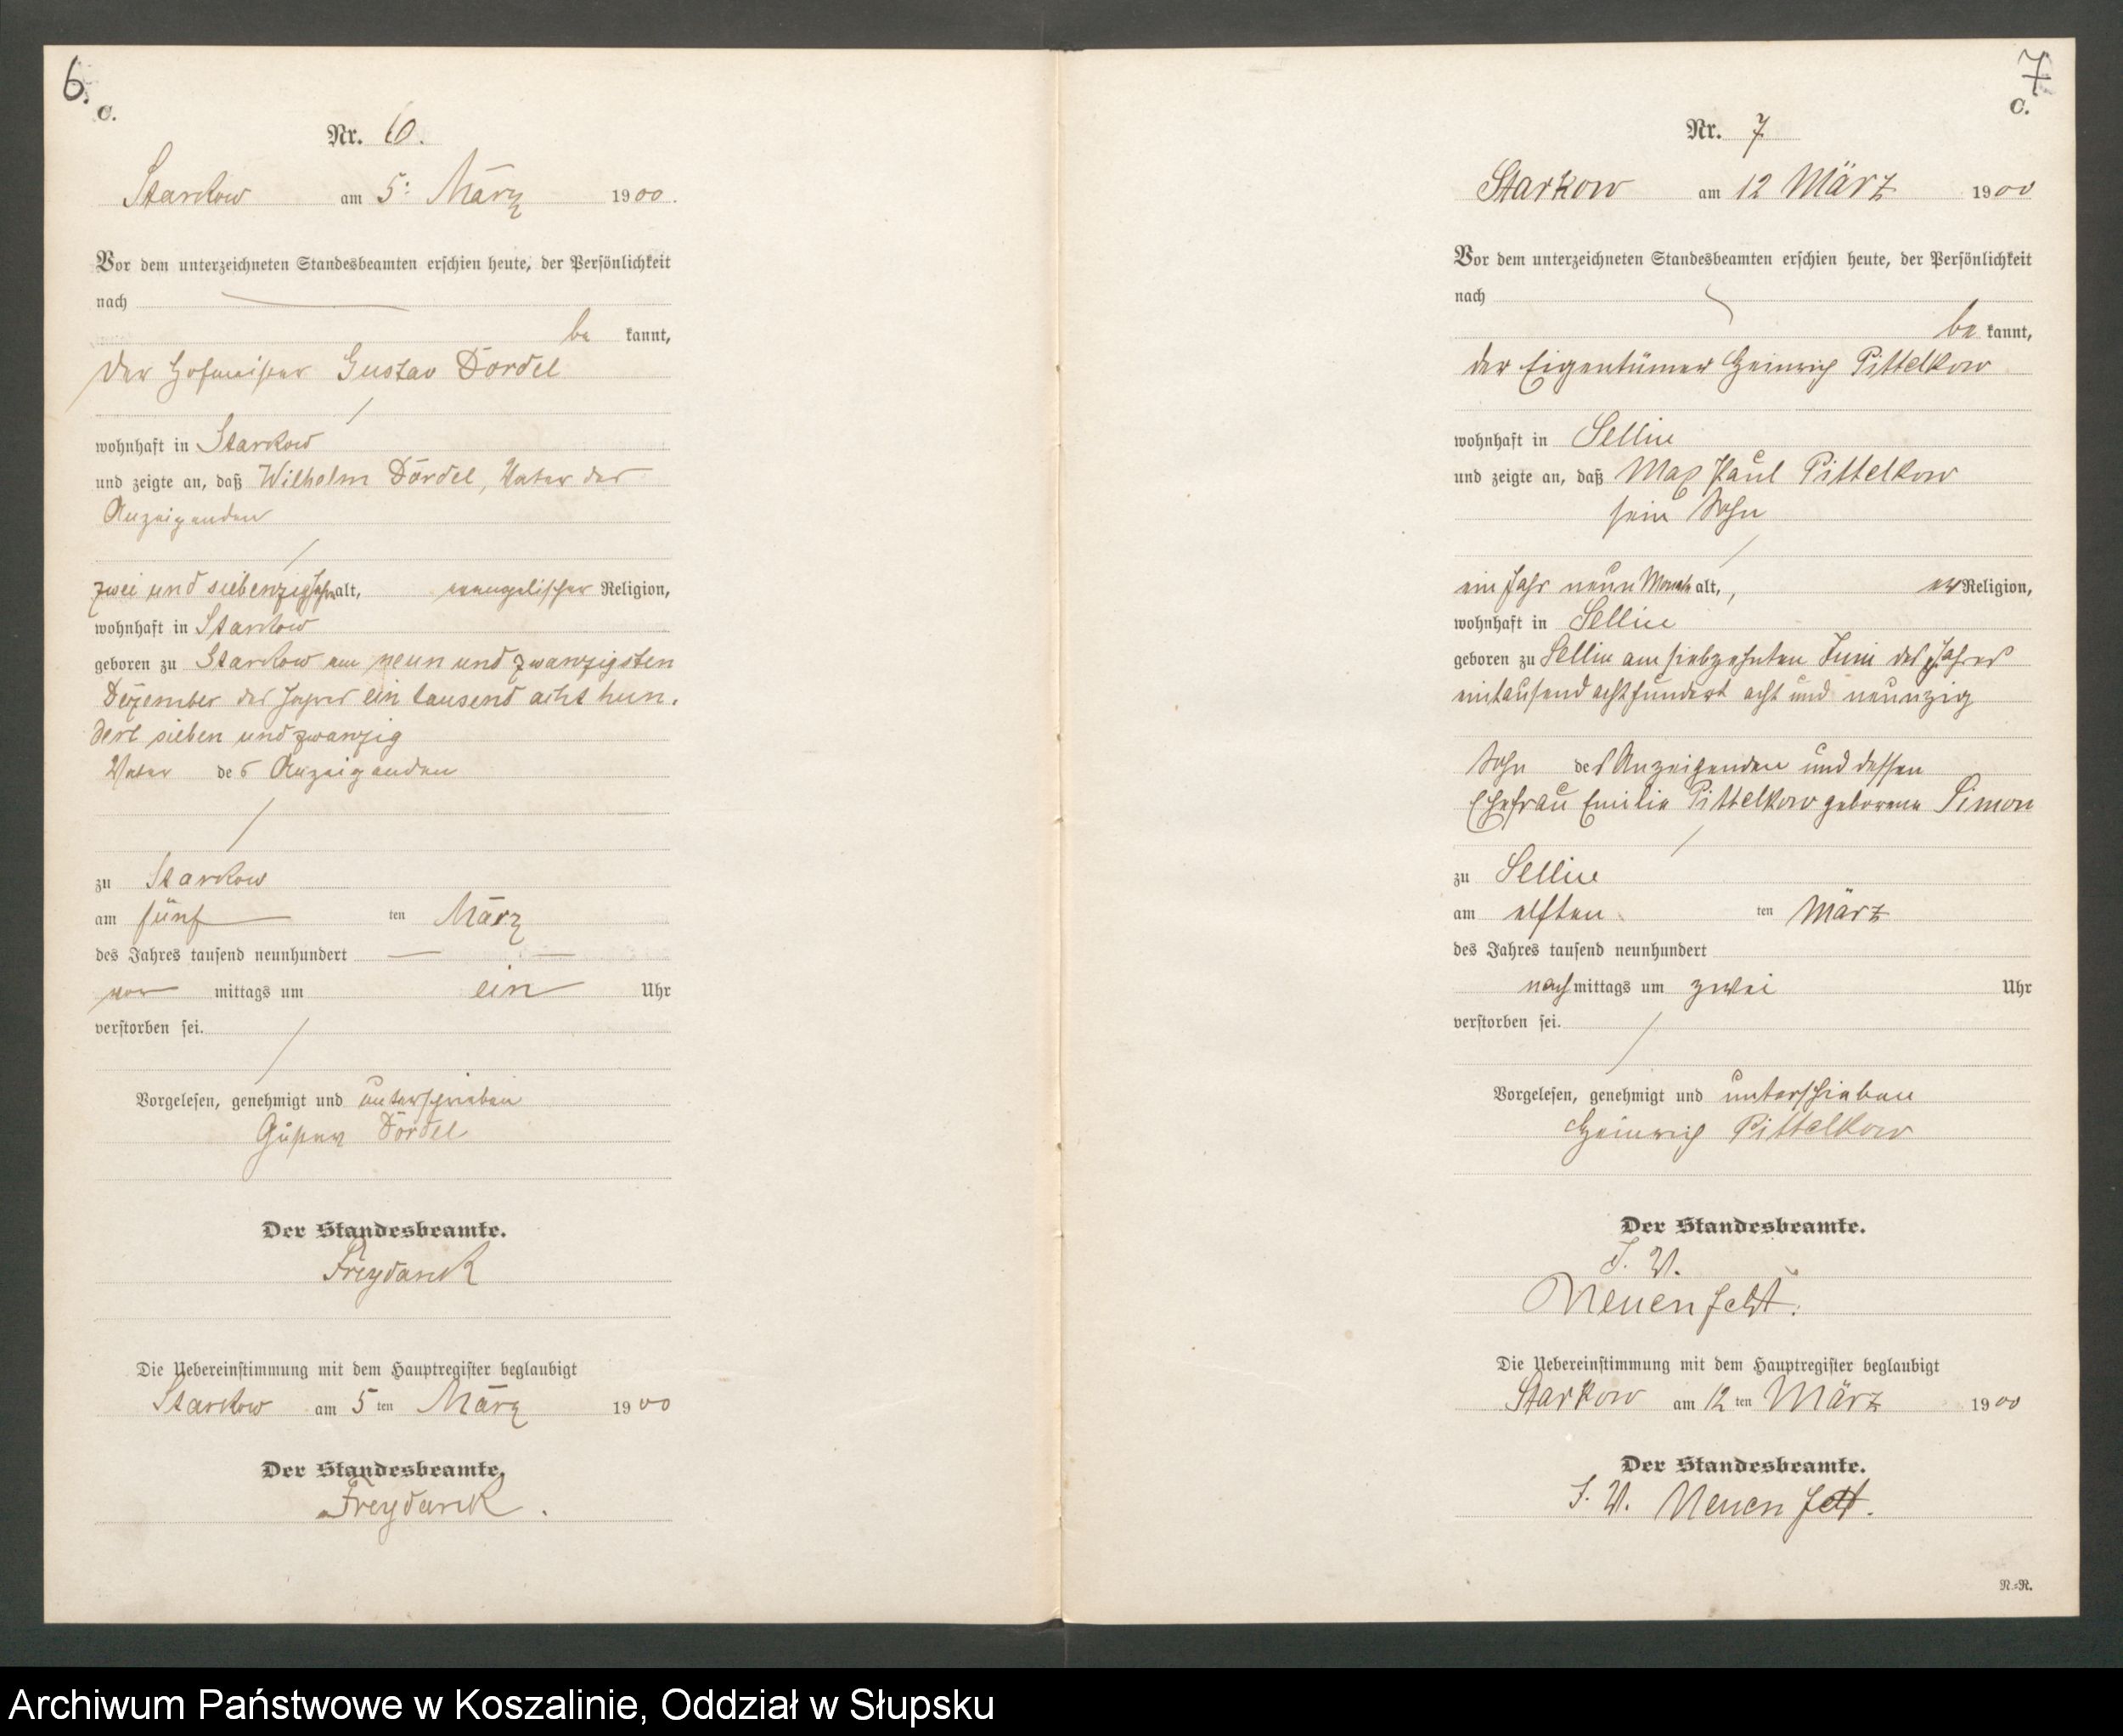 6.
C.
Nr. 6.
Starckow am 5: März 1900.
Vor dem unterzeichneten Standesbeamten erschien heute, der Persönlichkeit
nach
be kannt,
der Hofmeister Gustav Dördel
wohnhaft in Starckow
und zeigte an, daß Wilhelm Dördel, Vater des
Anzeigenden
zwei und siebenzig Jahr alt, evangelischer Religion,
wohnhaft in Starckow
geboren zu Starckow am neun und zwanzigsten
Dezember des Jahres ein tausend acht hun-
dert sieben und zwanzig
Vater des Anzeigenden
zu Starckow
am fünf ten März
des Jahres tausend neunhundert
vor mittags um ein Uhr
verstorben sei.
Vorgelesen, genehmigt und unterschrieben
Gustav Dördel
Der Standesbeamte.
Freydanck
Die Uebereinstimmung mit dem Hauptregister beglaubigt
Starckow am 5 ten März 1900
Der Standesbeamte.
Freydanck.
7
C.
Nr. 7
Starkow am 12 März 1900
Vor dem unterzeichneten Standesbeamten erschien heute, der Persönlichkeit
nach
be kannt,
der Eigentümer Heinrich Pittelkow
wohnhaft in Sellin
und zeigte an, daß Max Paul Pittelkow
sein Sohn
ein Jahr neun Monate alt, ev Religion,
wohnhaft in Sellin
geboren zu Sellin am siebzehnten Juni des Jahres
eintausend achthundert acht und neunzig
Sohn des Anzeigenden und dessen
Ehefrau Emilie Pittelkow geborene Simon
zu Sellin
am elften ten März
des Jahres tausend neunhundert
nach mittags um zwei Uhr
verstorben sei.
Vorgelesen, genehmigt und unterschieben
Heinrich Pittelkow
Der Standesbeamte.
I. V.
Neuenfeldt.
Die Uebereinstimmung mit dem Hauptregister beglaubigt
Starkow am 12 ten März 1900
Der Standesbeamte.
I. V. Neuenfeldt.
N.=R.
Archiwum Państwowe w Koszalinie, Oddział w Słupsku